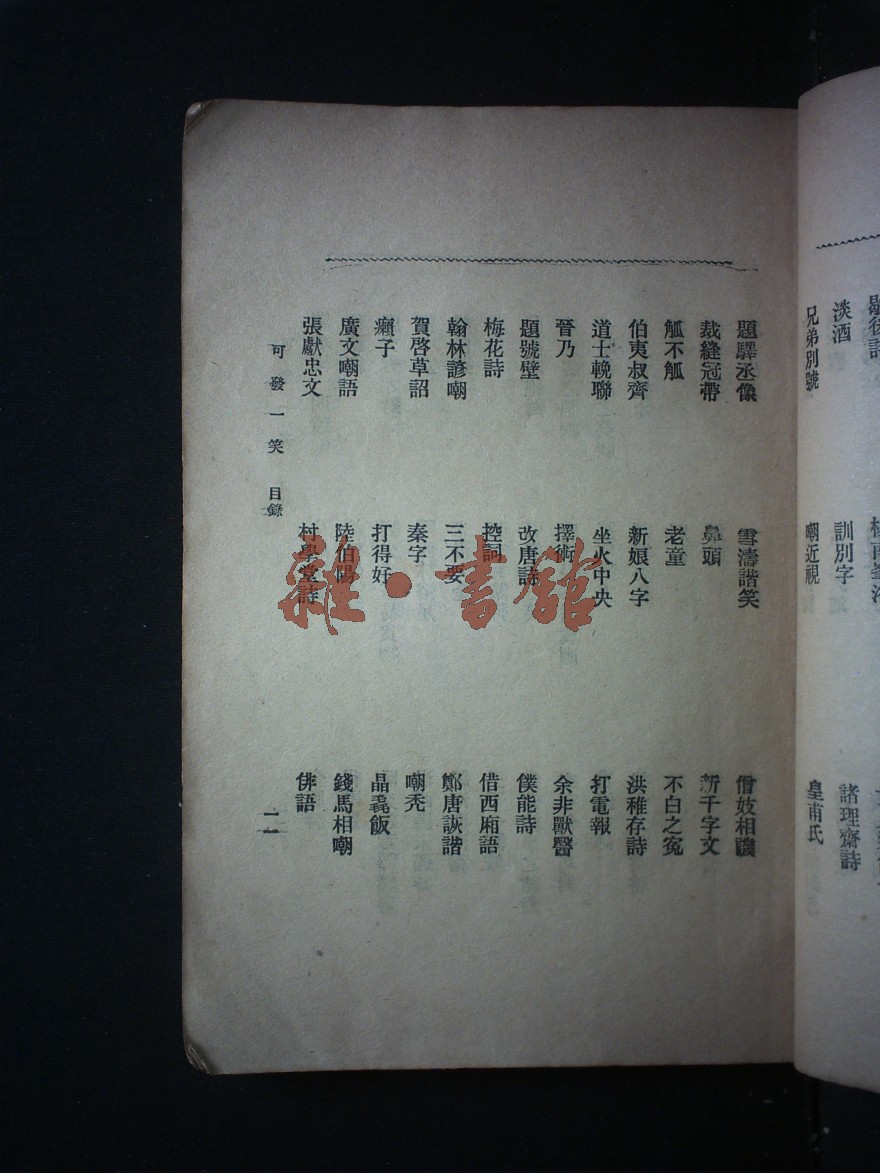 淡酒 訓別字 諸理齋詩
兄弟別號 嘲近視 皇甫氏
題驛丞像 雪濤諧笑 僧妓相譏
裁縫冠帶 鼻頭 新千字文
觚不觚 老童 不白之冤
伯夷叔齊 新娘八字 洪稚存詩
道士輓聯 坐火中央 打電報
晉乃 擇術 余非獸醫
題號壁 改唐詩 僕能詩
梅花詩 控詞 借西廂語
翰林諺嘲 三不要 鄭唐詼諧
賀啓草詔 秦字 嘲禿
癩子 打得好 晶毳飯
廣文嘲語 陸伯陽 錢馬相嘲
張獻忠文 村學堂詩 俳語
可發一笑 目錄 二
雜·書館